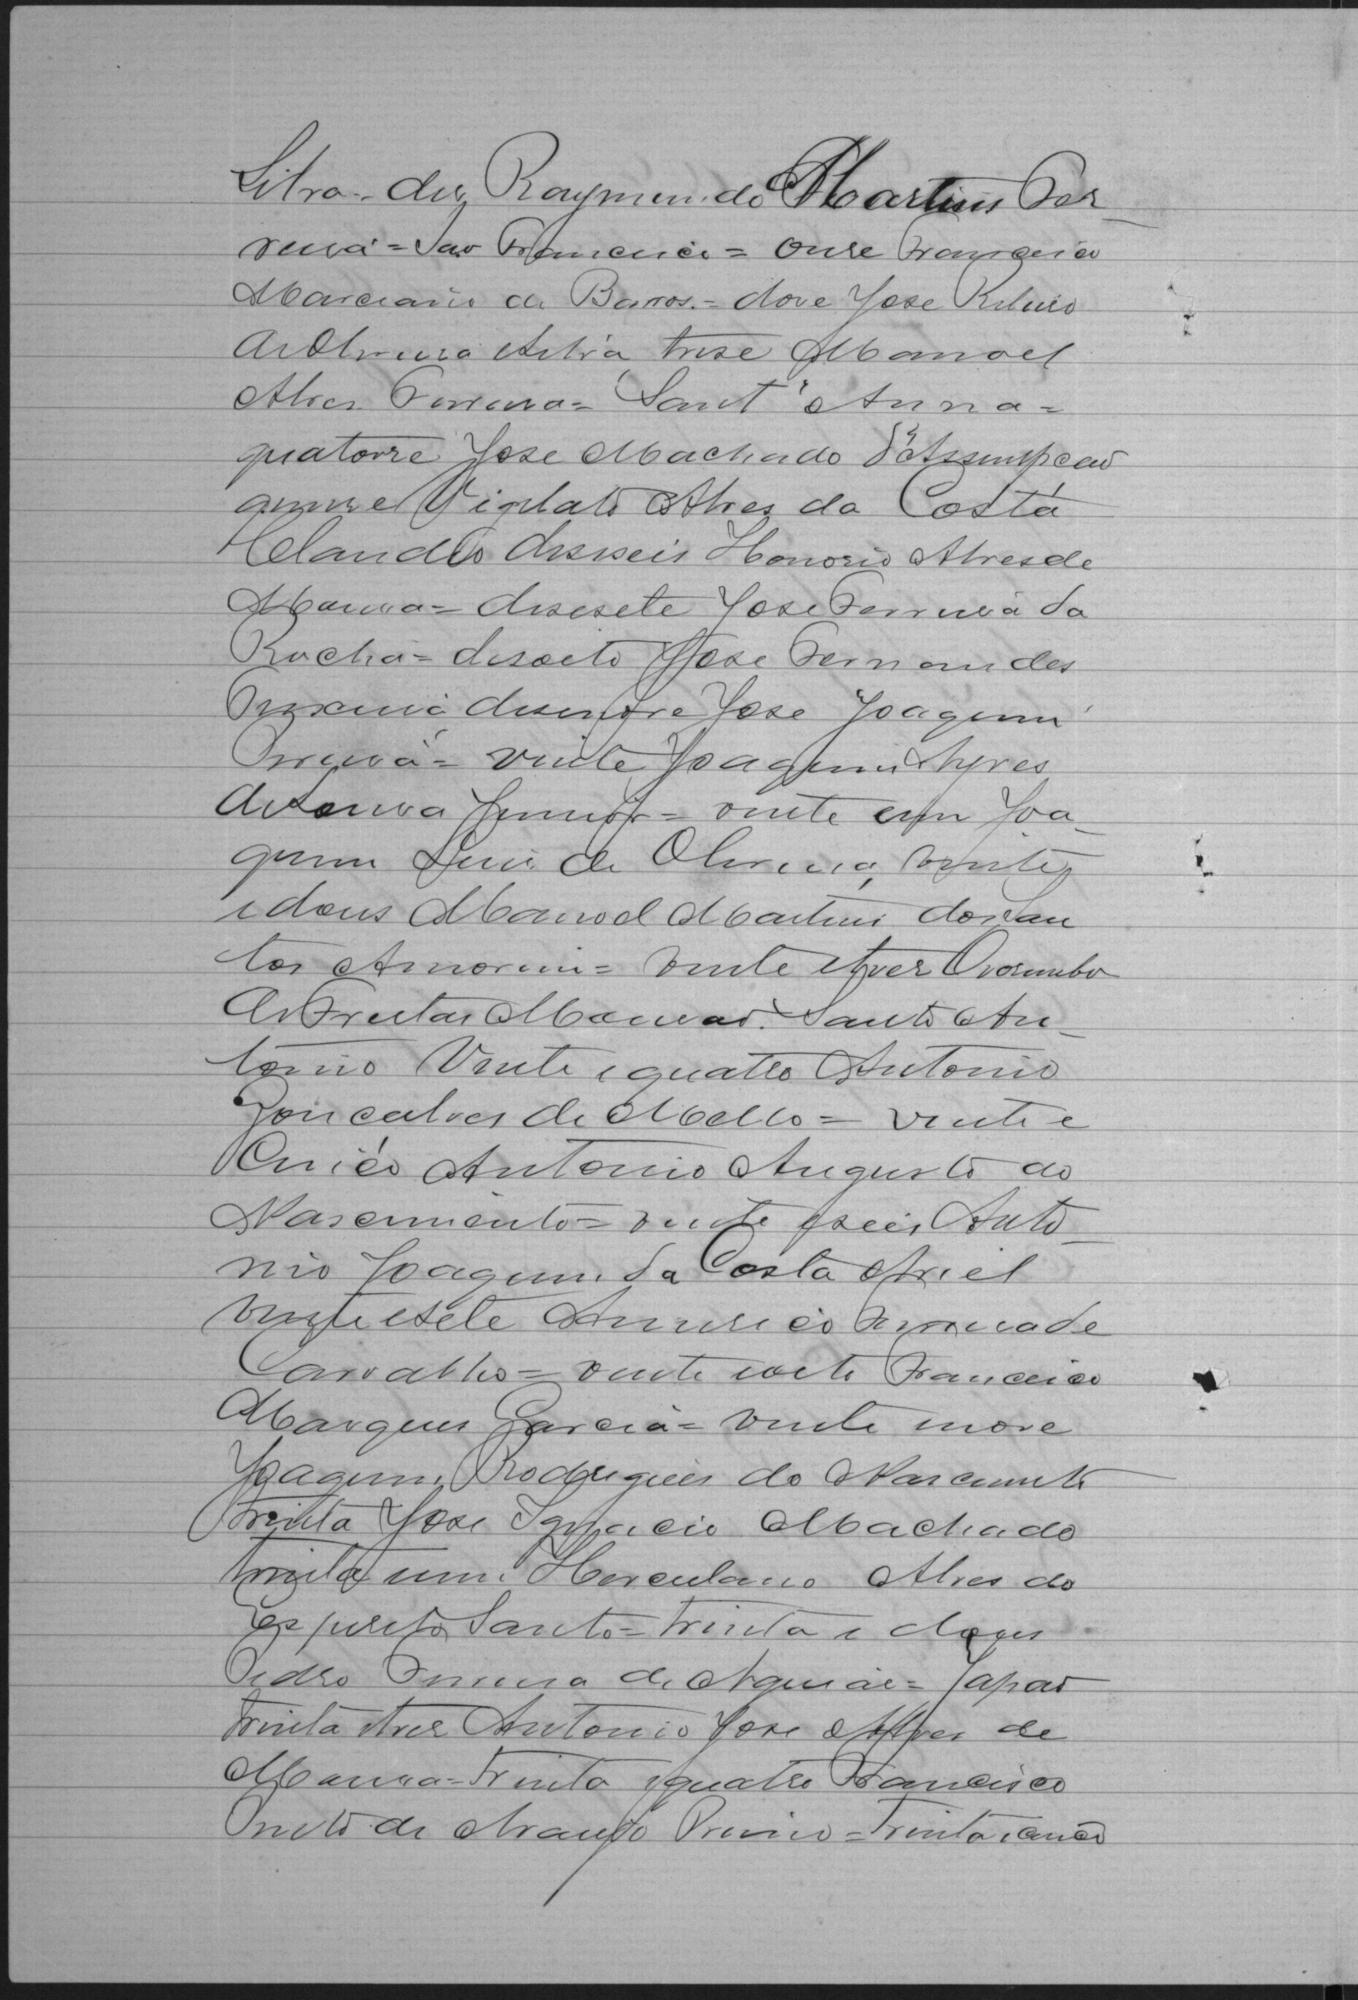 Silva - des Raymundo Martins Fer-
reira = São Francisco = onze Francisco
Marciano de Barros = doze Jose Ribeiro
de Oliveira trese Manoel
Alves Ferreira = Sant'Anna =
quatorze Jose Machado d'Assumpcao
quinse Vigilato Alves da Costa
deseseis Honorio Alves de
Moura = desesete Jose Ferreira da
Rocha = desoito Jose Fernandes
desenove Jose Joaquim
Ferreira = vinte Joaquim Ayres
de Sousa Junior = vinte eum Joa-
quim Luis de Oliveira, vinte
e dous Manoel Martins dos San
tos Amorim = vinte etres Orosimbo
de Freitas Mourao. Santo An-
tonio Vinte e quatro Antonio
Goncalves de Mello = vinte e
Cinco Antonio Augusto do
Nascimento = vinte eseis Anto-
nio Joaquim da Costa
vinte esete Americo Ferreira de
Carvalho = vinte eoito Francisco
Marques Garcia = vinte nove
Joaquim Rodrigues do Nascimento
trinta Jose Ignacio Machado
trinta eum Herculano Alves do
Espirito Santo = trinta e dous
Pedro Ferreira de Aguiar = Japão
trinta etres Antonio Jose Alves de
Moura = trinta equatro Francisco
Pinto de Araujo Primo = Trinta ecinco